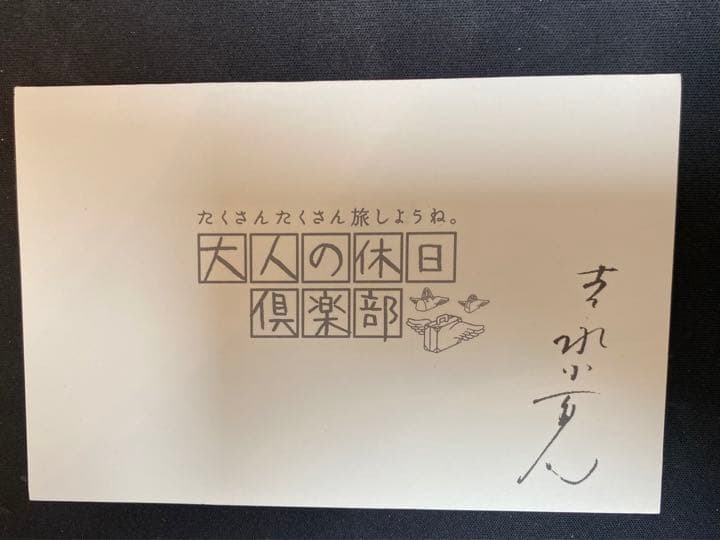 たくさんたくさん旅しようね。
大人の休日
倶楽部
吉永小百合